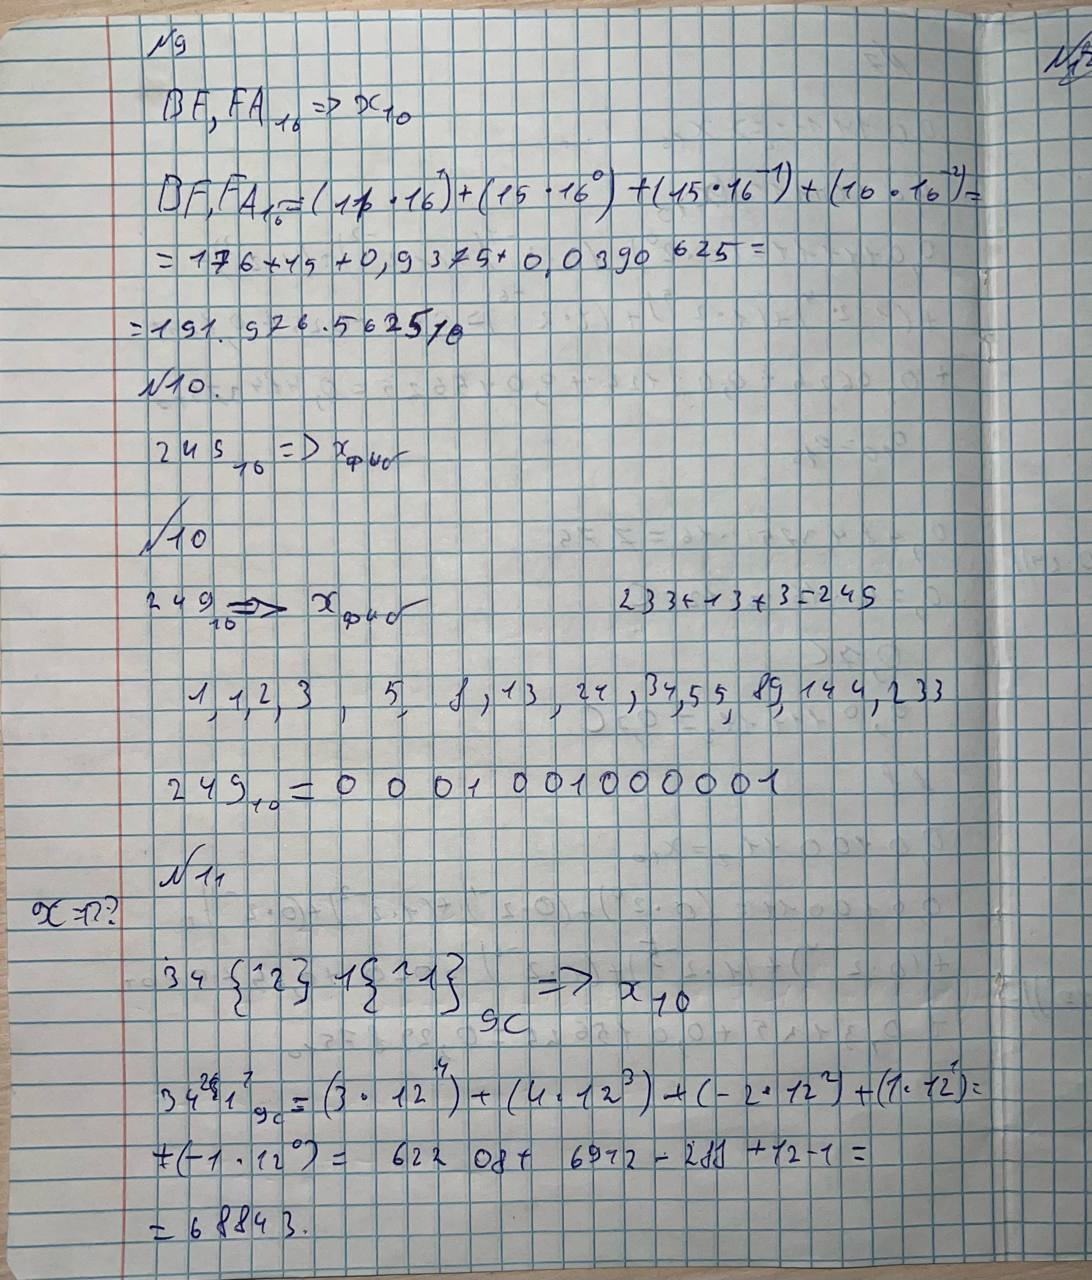 №9
BF,FA₁₆ => x₁₀
BF,FA₁₆ = (11 · 16¹) + (15 · 16⁰) + (15 · 16⁻¹) + (10 · 16⁻²) =
= 176 + 15 + 0,9375 + 0,0390625 =
= 191.976.5625₁₀
№10.
249₁₀ => xфиб
№10
249₁₀ => xфиб 233 + 13 + 3 = 249
1, 1, 2, 3, 5, 8, 13, 21, 34, 55, 89, 144, 233
249₁₀ = 0001001000001
№11
x = ??
34{^2}1{^1}₉C => x₁₀
34 1 ₉C = (3 · 12⁴) + (4 · 12³) + (-2 · 12²) + (1 · 12¹) =
+ (-1 · 12⁰) = 62208 + 6912 - 288 + 12 - 1 =
= 68843.